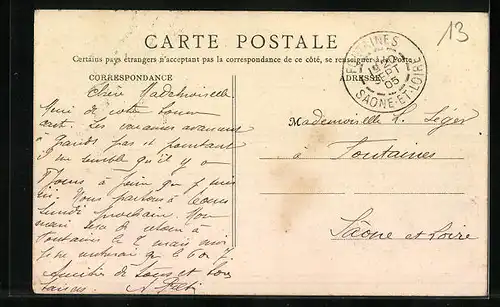 13
CARTE POSTALE
Certains pays étrangers n'acceptent pas la correspondance de ce côté, se renseigner à la Poste
CORRESPONDANCE
ADRESSE
FONTAINES
SEPT
05
SAONE-ET-LOIRE
Chère Mademoiselle
Merci de votre bonne
carte. Les vacances avancent
à grands pas et pourtant
il me semble qu'il y a
jours à
Nous partons à
lundi prochain. Mon
mari sera de retour à
Fontaines le 2 mais moi
je ne rentrerai que le 6 ou 7.
Amitiés de tous et bons
baisers.
Mademoiselle L. Léger
à Fontaines
Saône et Loire